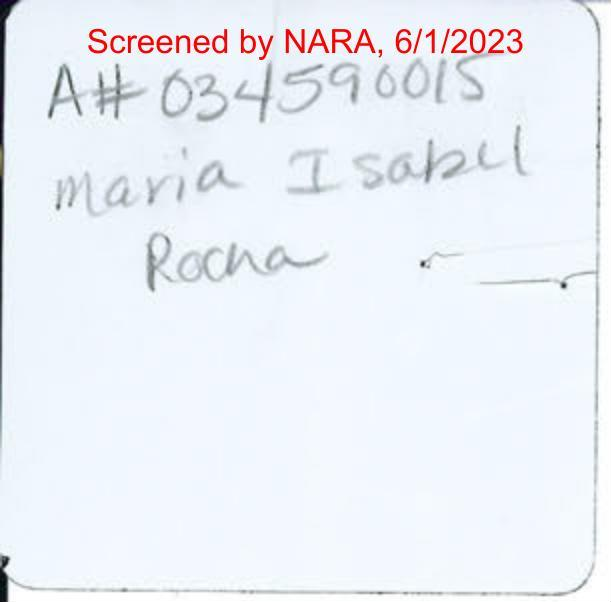 Screened by NARA, 6/1/2023
A# 034590015
Maria Isabel
Rocha